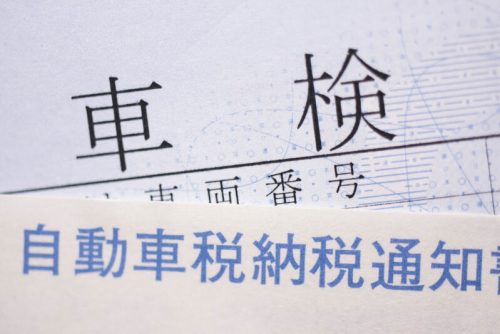 車検
車両番号
自動車税納税通知書